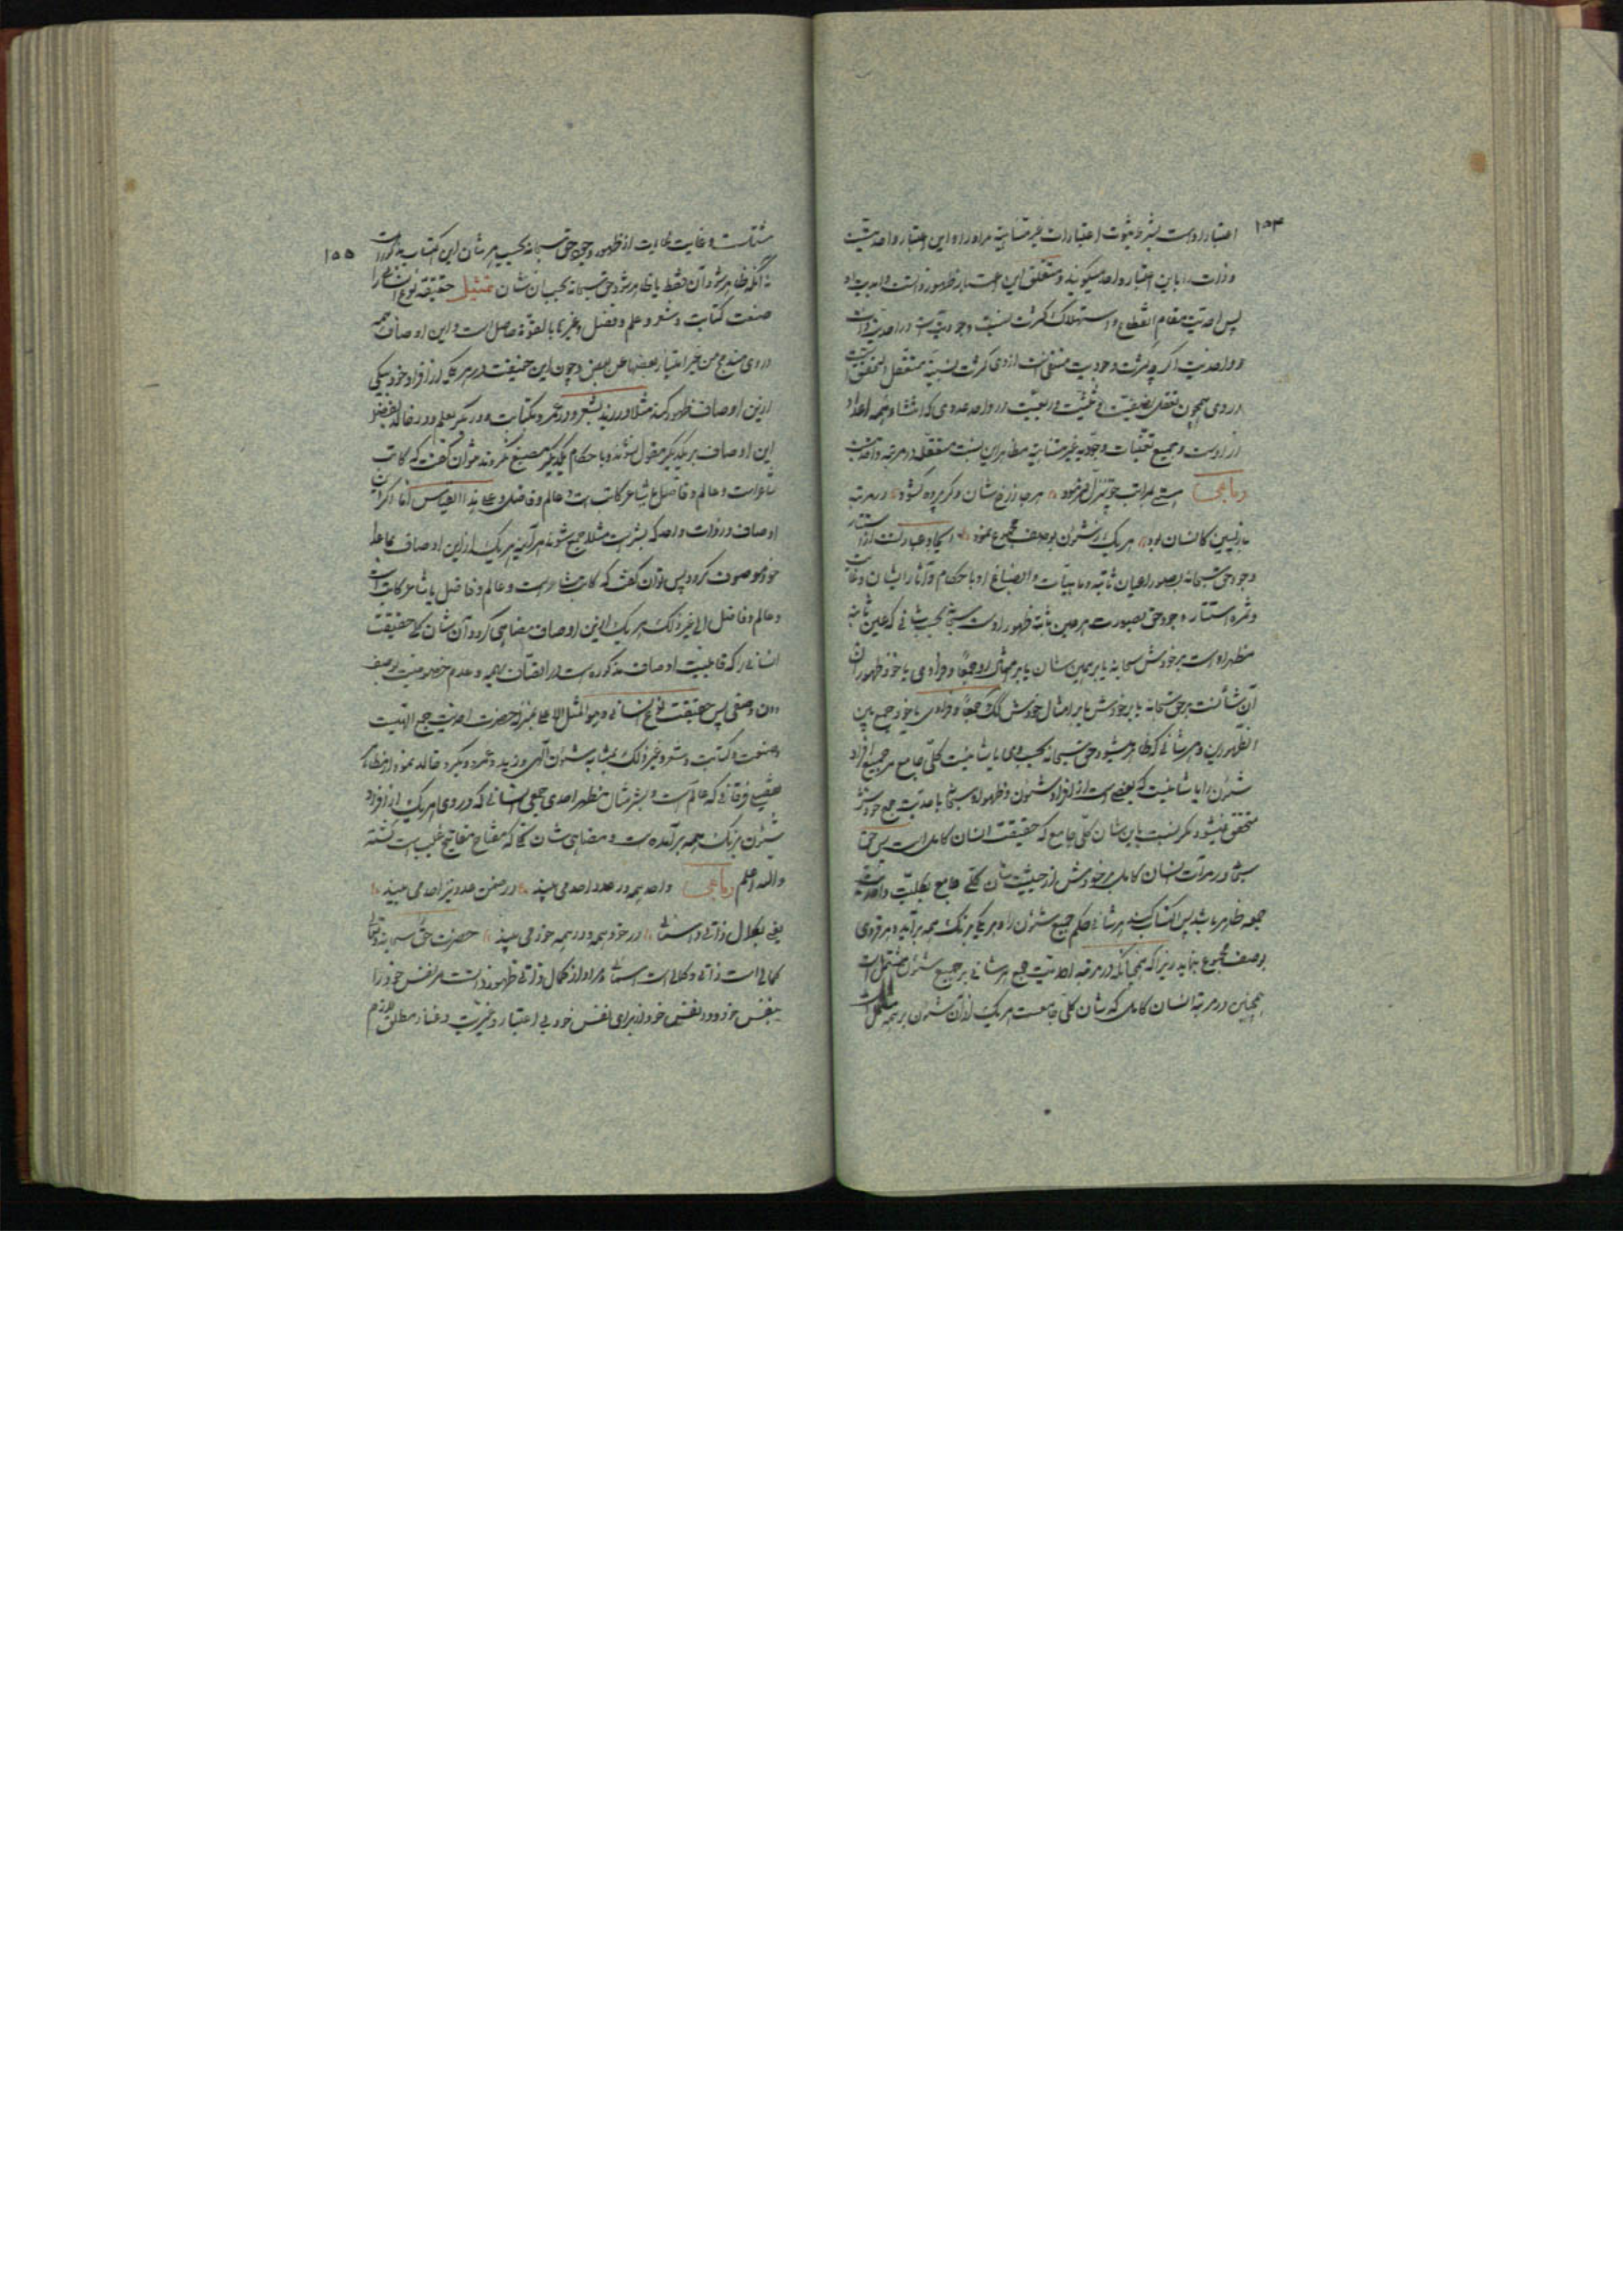 ۱۵۴
اعتبار اوست بشرط ثبوت اعتبارات غیر متناهیه مر او را و این اعتبار واحدیتست
و ذات را باین اعتبار واحد میگویند و متعلق این اعتبار ظهور ذاتست و ابدیت او
پس احدیت مقام انقطاع و استهلاک کثرت نسبیه وجودیه است در احدیت ذات
و واحدیت اگر چه کثرت وجودیت منتفی است از وی کثرت نسبیه متعقل التحقق است
در وی همچون تعقل نصفیت و ثلثیت و ربعیت در واحد عددی که انتشاء همه اعداد
از اوست و جمیع تعینات وجودیه غیر متناهیه مظاهر این نسبت متعقله در مرتبه واحدیت
رباعی هستی بمراتب چو تنزل فرمود هر جا ز رخ شان دگر پرده گشود در مرتبه
بازپسین کانسان بود هر یک ز شئون بوصف مجموع نمود ایجاد عبارتست از استتار
وجود حق سبحانه بصور اعیان ثابته و ماهیات و انصباغ او باحکام و آثار ایشان و غایت
و ثمره استتار وجود حق بصورت هر عین ثابته ظهور اوست سبحانه بحسب شانی که عین ثابته
مظهر اوست بر خودش سبحانه یا بر همین شان یا بر امثال او جمعا و فرادی یا خود ظهور آن
آن شانست بر حق سبحانه یا بر خودش یا بر امثال خودش کذلک جمعا و فرادی یا خود جمع بین
الظهورین و هر شانی که ظاهر میشود حق سبحانه بحسب وی یا شانیست کلی جامع مر جمیع افراد
شئون را یا شانیست که بعضی است از افراد شئون و ظهور او سبحانه باحدیت جمع خودش
متحقق نمیشود مگر نسبت باین شان کلی جامع که حقیقت انسان کامل است پس حق
سبحانه در مرآت انسان کامل بر خودش از حیثیت شان کلی جامع بکلیت و احدیت
جمعه ظاهر باشد پس اکتساب کند هر شانی حکم جمیع شئون را و هر یکی برنگ همه برآید و هر فردی
بوصف مجموع بنماید زیرا که همچنانکه در مرتبه احدیت جمع هر شانی بر جمیع شئون مشتمل است
همچنین در مرتبه انسان کامل که شان کلی جامعست هر یک از آن شئون بر همه مشتملست
۱۵۵
مشتملست و غایت غایات از ظهور وجود حق سبحانه بحسب هر شان این اکتساب مذکور است
نه آنکه ظاهر شود آن فقط یا ظاهر شود حق سبحانه بحسب آن شان تمثیل حقیقه نوع انسانی را
صنعت کتابت و شعر و علم و فضل و غیرها بالقوه حاصل است و این اوصاف همه
در وی مندمج من غیر امتیاز بعضها عن بعض و چون این حقیقت در هر یک از افراد خود بیکی
از این اوصاف ظهور کند مثلا در زید بشعر و در عمرو بکتابت و در بکر بعلم و در خالد بفضل
این اوصاف بر یکدیگر مقول نشوند و باحکام یکدیگر منصبغ نگردند نتوان گفت که کاتب
شاعر است و عالم و فاضل یا شاعر کاتب است و عالم و فاضل و علی هذا القیاس اما اگر این
اوصاف در ذات واحد که بشر است مثلا جمع شوند هر آینه هر یک از این اوصاف بما عدا
خود موصوف گردد پس توان گفت که کاتب شاعر است و عالم و فاضل یا شاعر کاتب است
و عالم و فاضل الی غیر ذلک هر یک از این اوصاف مضاهی گردد آن شان کلی حقیقت
انسانی را که قابلیت اوصاف مذکوره است در اتصاف بهمه و عدم خصوصیت بوصف
دون وصفی پس حقیقت نوع انسانی و هو المثل الاعلی بمنزله حضرت احدیت جمع الهیت
و صنعت و کتابت و شعر و غیر ذلک بمثابه شئون الهی و زید و عمرو و بکر و خالد نمودار مظاهر
تفصیلی فرقانی که عالم است و بشر مثال مظهر احدی جمعی انسانی که در وی هر یک از افراد
شئون برنگ همه برآمده است و مضاهی شان کلی که مفتاح مفاتیح غیب است گشته
والله اعلم رباعی واحد همه در عدد واحد می بیند در ضمن عدد نیز احد می بیند
یعنی بکمال ذاتی و اسمائی در خود همه و در همه خود می بیند حضرت حق سبحانه و تعالی
کمالی است ذاتی و کمالی است اسمائی مراد از کمال ذاتی ظهور ذات است مر نفس خود را
بنفس خود در نفس خود از برای نفس خود بی اعتبار غیر و غیریت و غنای مطلق لازم